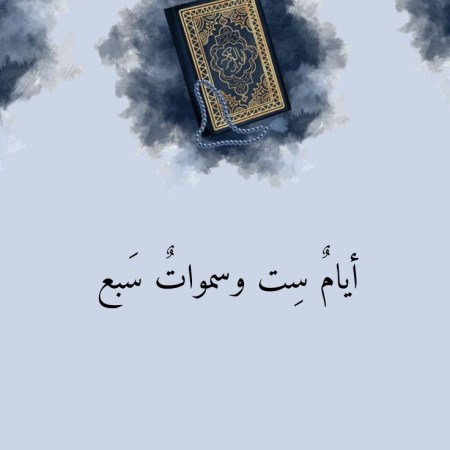 أيامٌ سِت وسمواتٌ سَبع